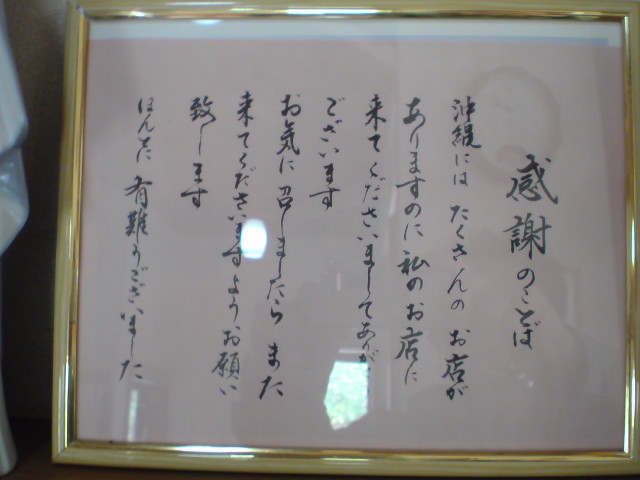 感謝のことば
沖縄には たくさんの お店が
ありますのに 私のお店に
来てくださいましてありが
ございます
お気に召しましたら また
来てくださいますようお願い
致します
ほんとに 有難うございました